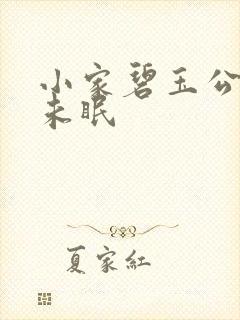 小家碧玉公
未眠
夏家红